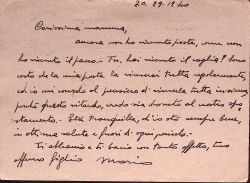 20-29-12-40
Carissima mamma,
ancora non ho ricevuto posta, come non
ho ricevuto il pacco. Tu, hai ricevuto il vaglia? Sono
certo della mia posta la riceverai tutta regolarmente
ed io mi consolo al pensiero di riceverla tutta insieme
perché questo ritardo, credo sia dovuto al nostro spo
stamento. Sta tranquilla, di'ti sto sempre bene,
in ottima salute e fuori di ogni pericolo.
Ti abbraccio e ti bacio con tanto affetto, tuo
figlio Mario